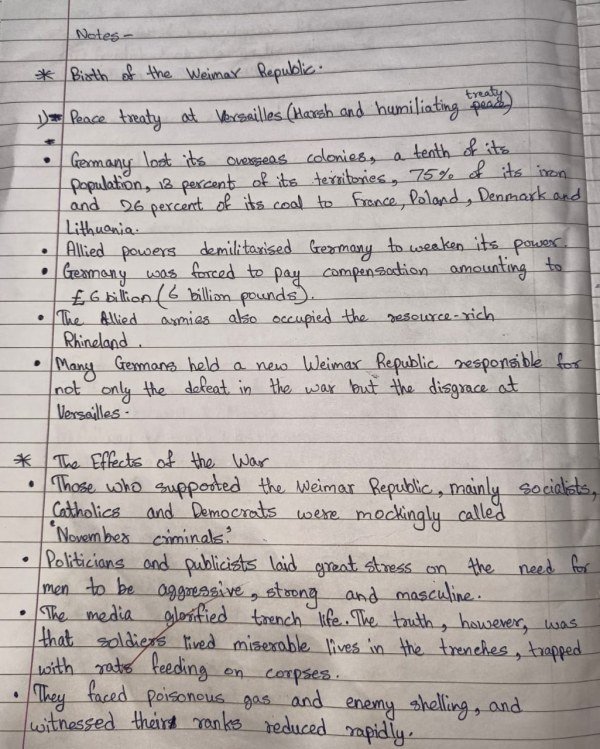 Notes-
* Birth of the Weimar Republic.
1) Peace treaty at Versailles (Harsh and humiliating peace treaty)
• Germany lost its overseas colonies, a tenth of its
population, 13 percent of its territories, 75% of its iron
and 26 percent of its coal to France, Poland, Denmark and
Lithuania.
• Allied powers demilitarised Germany to weaken its power.
• Germany was forced to pay compensation amounting to
£6 billion (6 billion pounds).
• The Allied armies also occupied the resource-rich
Rhineland.
• Many Germans held a new Weimar Republic responsible for
not only the defeat in the war but the disgrace at
Versailles.
* The Effects of the War
• Those who supported the Weimar Republic, mainly socialists,
Catholics and Democrats were mockingly called
'November criminals.'
• Politicians and publicists laid great stress on the need for
men to be aggressive, strong and masculine.
• The media glorified trench life. The truth, however, was
that soldiers lived miserable lives in the trenches, trapped
with rats feeding on corpses.
• They faced poisonous gas and enemy shelling, and
witnessed their ranks reduced rapidly.